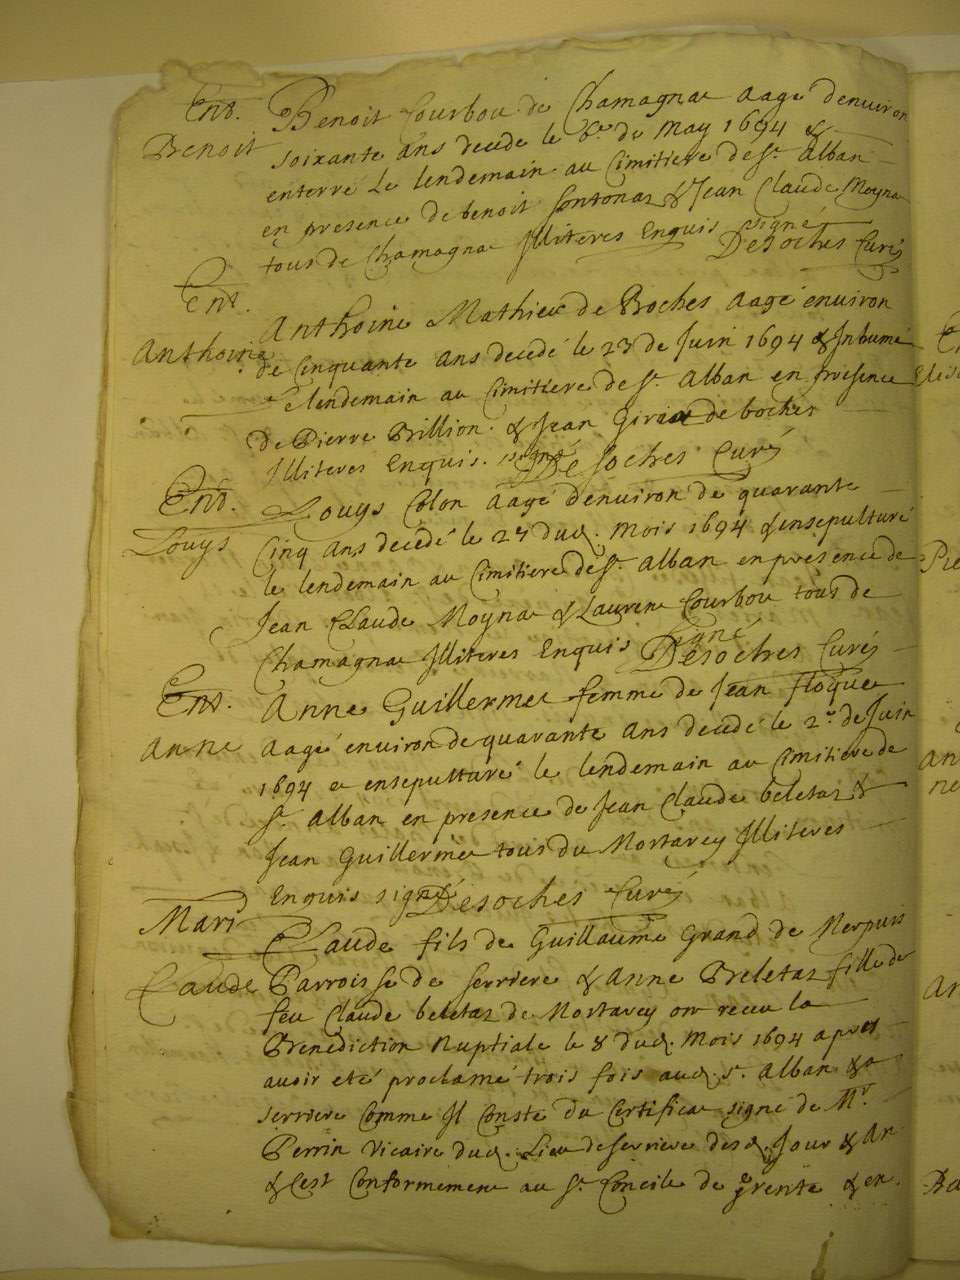 Ent.
Benoit
Benoit Courbou de Chamagnat aagé denuiron
soixante ans decede le 6e de May 1694 &
enterré Le lendemain au Cimitiere de St Alban
en presence de benoit & Jean Claude Moyna
tous de Chamagnat Illiteres Enquis signé
Desoches Curé
Ent.
Anthoine
Anthoine Mathieu de Boches aagé enuiron
de Cinquante ans decedé le 23 de Juin 1694 & Inhumé
le lendemain au Cimitiere de St Alban en presence
de Pierre Brillion & Jean Girar de boches
Illiteres Enquis signé Desoches Curé
Ent.
Louys
Louys Colon aagé denuiron de quarante
Cinq ans decedé le dud. mois 1694 & ensepulturé
le lendemain au Cimitiere de St Alban en presence de
Jean Claude Moynat & Laurent Courbou tous de
Chamagnat Illiteres Enquis signé Desoches Curé
Ent.
Anne
Anne Guillermet femme de Jean floquet
aagé enuiron de quarante ans decedé le 2e de Juin
1694 et ensepulturé le lendemain au Cimitiere de
St Alban en presence de Jean Claude beletaz &
Jean Guillermet tous du Mortarey Illiteres
Enquis signé Desoches Curé
Mari
Claude
Claude fils de Guillaume Grand de Merpuis
Parroisse de Serriere & Anne Beletaz fille de
feu Claude beletaz de Mortarey ont receu la
Benediction Nuptiale le 8 dud. mois 1694 apres
auoir eté proclamé trois fois aud. St Alban & a
Serriere Comme Il Conste du Certificat signé de Mr
Perrin Vicaire dud. Lieu de Serriere desd. Jour & An
& Cest Conformement au St Concile de Trente & en